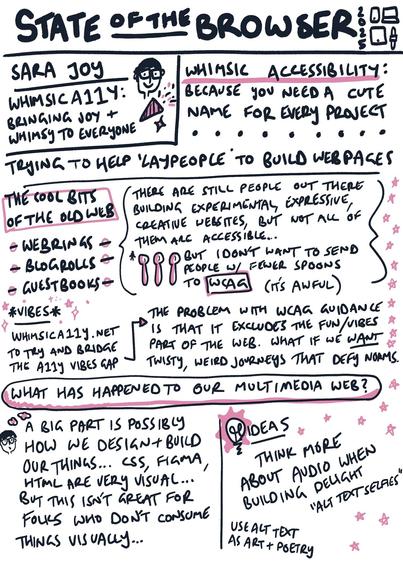 STATE OF THE BROWSER 2025
SARA JOY
WHIMSICA11Y:
BRINGING JOY +
WHIMSY TO EVERYONE
WHIMSIC ACCESSIBILITY:
BECAUSE YOU NEED A CUTE
NAME FOR EVERY PROJECT
TRYING TO HELP 'LAYPEOPLE' TO BUILD WEBPAGES
THE COOL BITS
OF THE OLD WEB
WEBRINGS
BLOGROLLS
GUESTBOOKS
THERE ARE STILL PEOPLE OUT THERE
BUILDING EXPERIMENTAL, EXPRESSIVE,
CREATIVE WEBSITES, BUT NOT ALL OF
THEM ARE ACCESSIBLE...
BUT I DON'T WANT TO SEND
PEOPLE W/ FEWER SPOONS
TO WCAG (IT'S AWFUL)
*VIBES*
WHIMSICA11Y.NET
TO TRY AND BRIDGE
THE A11Y VIBES GAP
THE PROBLEM WITH WCAG GUIDANCE
IS THAT IT EXCLUDES THE FUN/VIBES
PART OF THE WEB. WHAT IF WE WANT
TWISTY, WEIRD JOURNEYS THAT DEFY NORMS.
WHAT HAS HAPPENED TO OUR MULTIMEDIA WEB?
A BIG PART IS POSSIBLY
HOW WE DESIGN + BUILD
OUR THINGS... CSS, FIGMA,
HTML ARE VERY VISUAL...
BUT THIS ISN'T GREAT FOR
FOLKS WHO DON'T CONSUME
THINGS VISUALLY...
IDEAS
THINK MORE
ABOUT AUDIO WHEN
BUILDING DELIGHT
"ALT TEXT SELFIES"
USE ALT TEXT
AS ART + POETRY